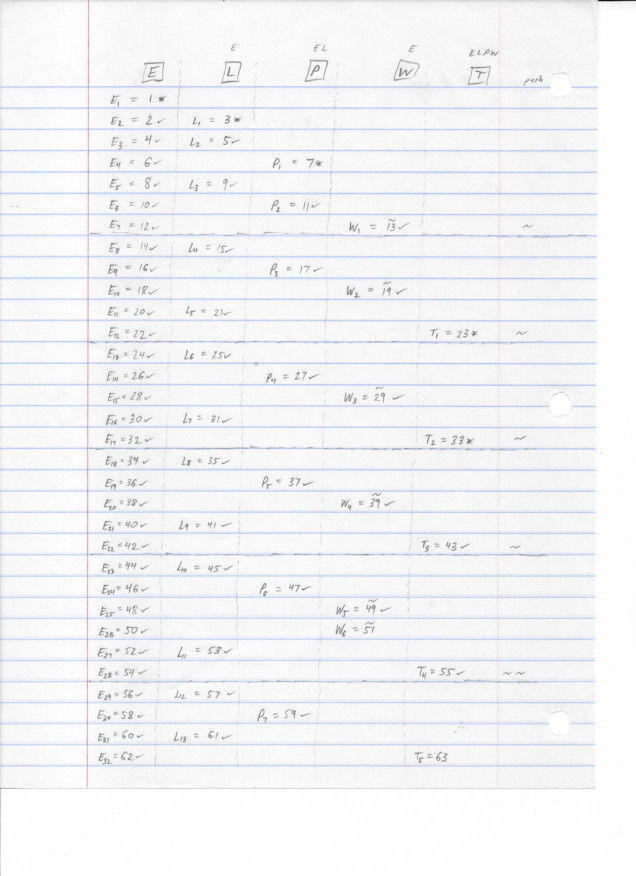 E EL E ELPW
E L P W T push
E₁ = 1 *
E₂ = 2 ✓ L₁ = 3 *
E₃ = 4 ✓ L₂ = 5 ✓
E₄ = 6 ✓ P₁ = 7 *
E₅ = 8 ✓ L₃ = 9 ✓
E₆ = 10 ✓ P₂ = 11 ✓
E₇ = 12 ✓ W₁ = 1͠3 ✓ ~
E₈ = 14 ✓ L₄ = 15 ✓
E₉ = 16 ✓ P₃ = 17 ✓
E₁₀ = 18 ✓ W₂ = 1͠9 ✓
E₁₁ = 20 ✓ L₅ = 21 ✓
E₁₂ = 22 ✓ T₁ = 23 * ~
E₁₃ = 24 ✓ L₆ = 25 ✓
E₁₄ = 26 ✓ P₄ = 27 ✓
E₁₅ = 28 ✓ W₃ = 2͠9 ✓
E₁₆ = 30 ✓ L₇ = 31 ✓
E₁₇ = 32 ✓ T₂ = 33 * ~
E₁₈ = 34 ✓ L₈ = 35 ✓
E₁₉ = 36 ✓ P₅ = 37 ✓
E₂₀ = 38 ✓ W₄ = 3͠9 ✓
E₂₁ = 40 ✓ L₉ = 41 ✓
E₂₂ = 42 ✓ T₃ = 43 ✓ ~
E₂₃ = 44 ✓ L₁₀ = 45 ✓
E₂₄ = 46 ✓ P₆ = 47 ✓
E₂₅ = 48 ✓ W₅ = 4͠9 ✓
E₂₆ = 50 ✓ W₆ = 5͠1
E₂₇ = 52 ✓ L₁₁ = 53 ✓
E₂₈ = 54 ✓ T₄ = 55 ✓ ~ ~
E₂₉ = 56 ✓ L₁₂ = 57 ✓
E₃₀ = 58 ✓ P₇ = 59 ✓
E₃₁ = 60 ✓ L₁₃ = 61 ✓
E₃₂ = 62 ✓ T₅ = 63